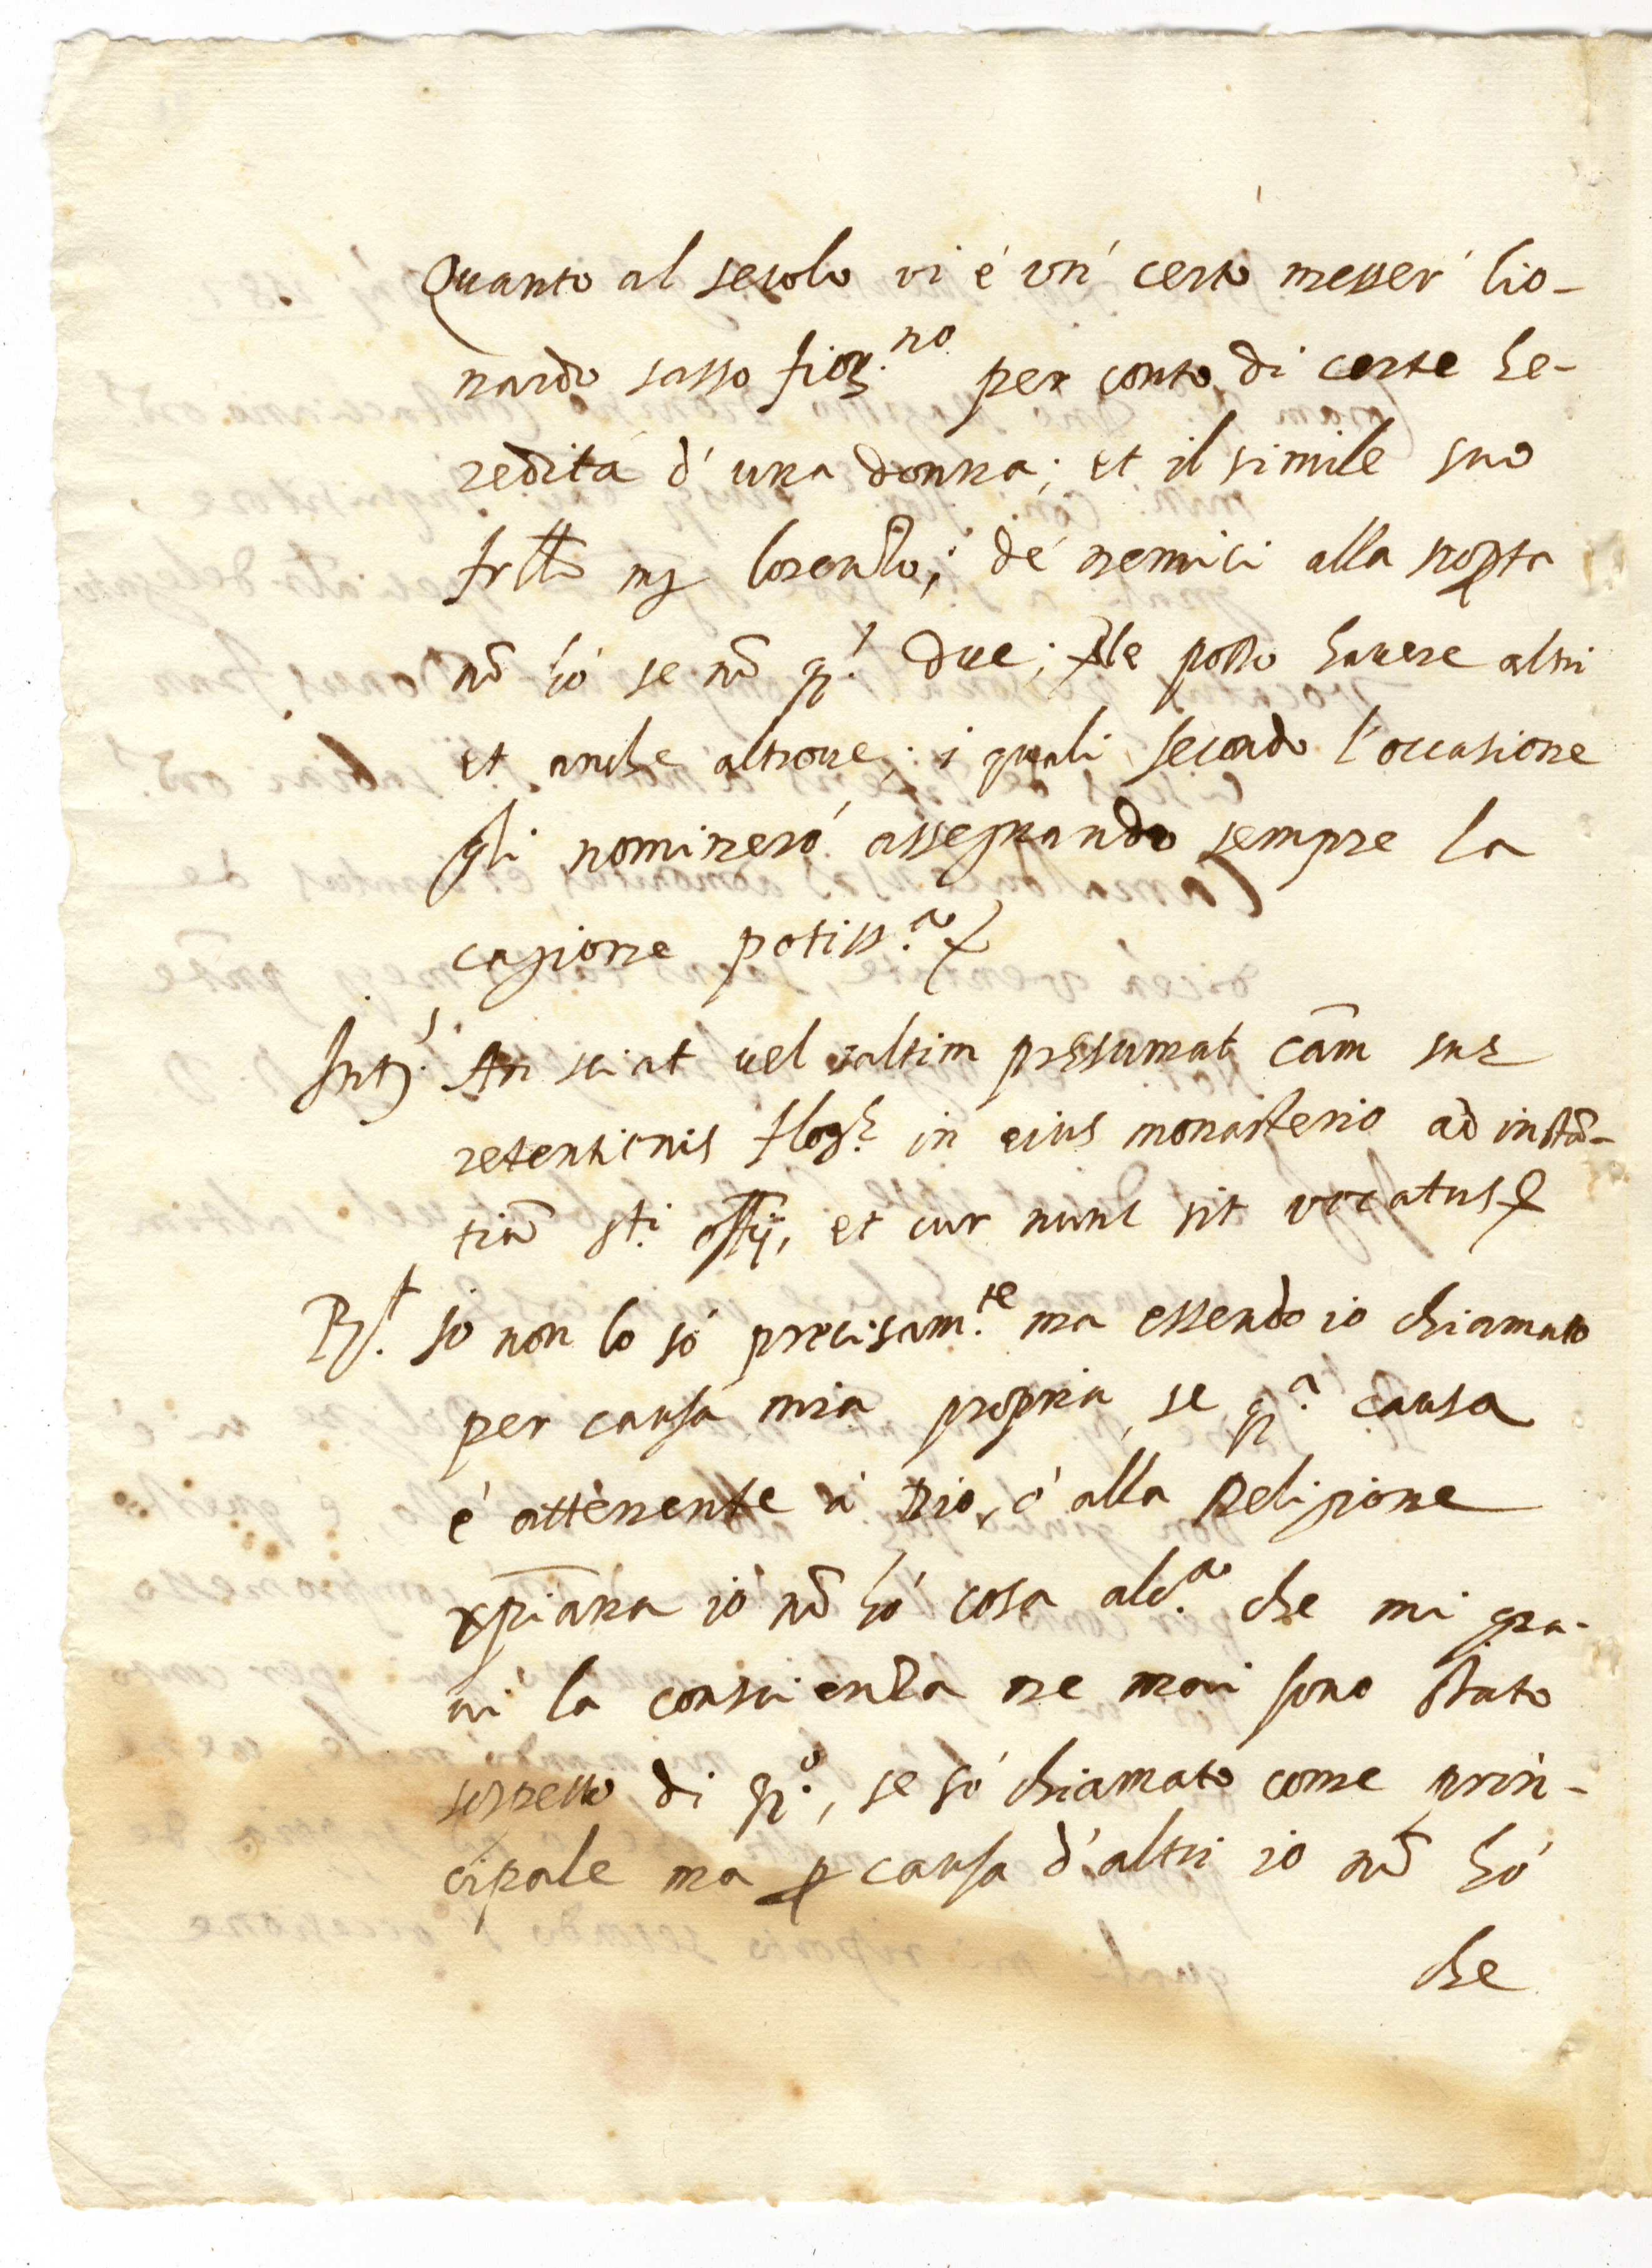 Quanto al secolo vi é un' certo messer' lio-
nardo sasso fior.no per conto di certe he-
redita d' una donna; et il simile suo
frllo lorenzo; de nemici alla
nõ hó se nõ qi. due; posso havere altri
et anche altrove; i quali secondo l'occasione
gli nomineró assegnando sempre la
cagione potiss.a
Int.s An sciat vel saltim presumat cãm suę
retentionis in eius monasterio ad instã-
tiã sti. offij, et cur nunc sit vocatus
Rt. Io non lo só precisam.te ma essendo io chiamato
per causa mia propria se qa. causa
é attenente á Dio, ó alla Religione
xpiana io nõ hó cosa alc.a che mi gra-
vi la conscienza ne mai sono stato
sospetto di qo., se só chiamato come prin-
cipale ma p causa d'altri io nõ hó
che